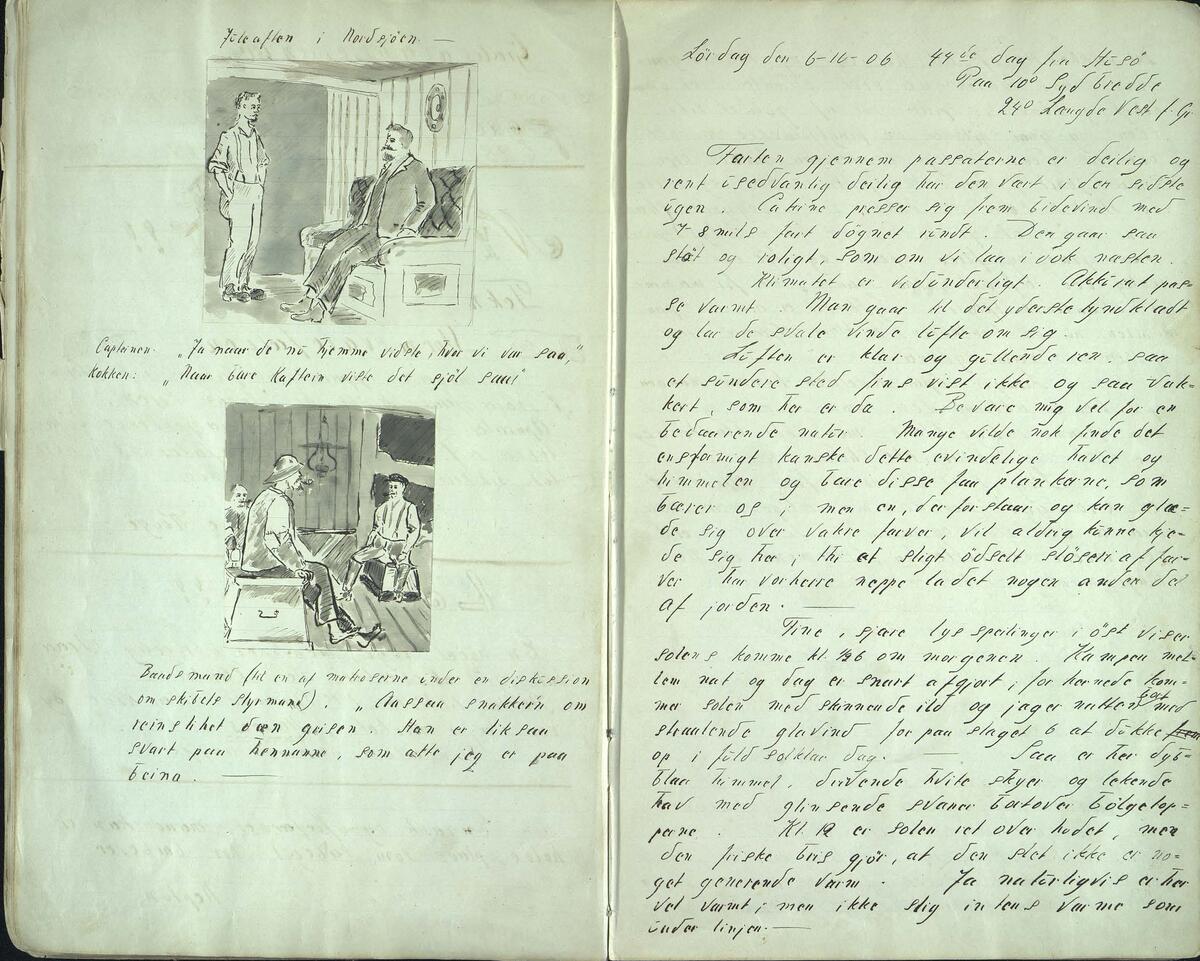 Juleaften i Nordsjøen. —
Captainen: „Ja naar de nu hjemme vidste, hvor vi var saa,"
Kokken: „Naar bare Kaftein viste det sjöl saa!"
Baadsmand (til en af matroserne under en diskussion
om skibets styrmand). „Aassaa snakker'n om
reinslihet dæn grisen. Han er lik saa
svart paa hennanne, som atte jeg er paa
beina. —
Lördag den 6-10-06 44de dag fra
Paa 10° Syd bredde
24° Længde Vest f. Gr.
Farten gjennem passaterne er deilig og
rent usedvanlig deilig har den vært i den sidste
ugen. Catrine presser sig frem bidevind med
7-8 mils fart dögnet rundt. Den gaar saa
stöt og roligt, som om vi laa i dok næsten.
Klimatet er vidunderligt. Akkurat pas-
se varmt. Man gaar til det yderste tyndklædt
og lar de svale vinde lufte om sig.
Luften er klar og gullende ren, saa
et sundere sted fins vist ikke og saa vak-
kert, som her er da. Bevare mig vel for en
bedaarende natur. Mange vilde nok finde det
ensformigt kanske dette evindelige havet og
himmelen og bare disse faa plankerne, som
bærer os; men en, der forstaar og kan glæ-
de sig over vakre farver, vil aldrig kunne kje-
de sig her; thi et sligt ödselt slöseri af far-
ver har vorherre neppe ladet nogen anden del
af jorden. —
Fine, sjære lysspeilinger i öst viser
solens komme kl. ½6 om morgenen. Kampen mel-
lem nat og dag er snart afgjort; for hernede kom-
mer solen med skinnende ild og jager natten bort med
straalende glavind for paa slaget 6 at dukke
op i fuld solklar dag. — Saa er her dyb-
blaa himmel, drivende hvite skyer og lekende
hav med glinsende svaner bortover bölgetop-
pene. Kl 12 er solen ret over hodet, men
den friske bris gjör, at den slet ikke er no-
get generende varm. Ja naturligvis er her
vel varmt; men ikke slig intens varme som
under linjen. —